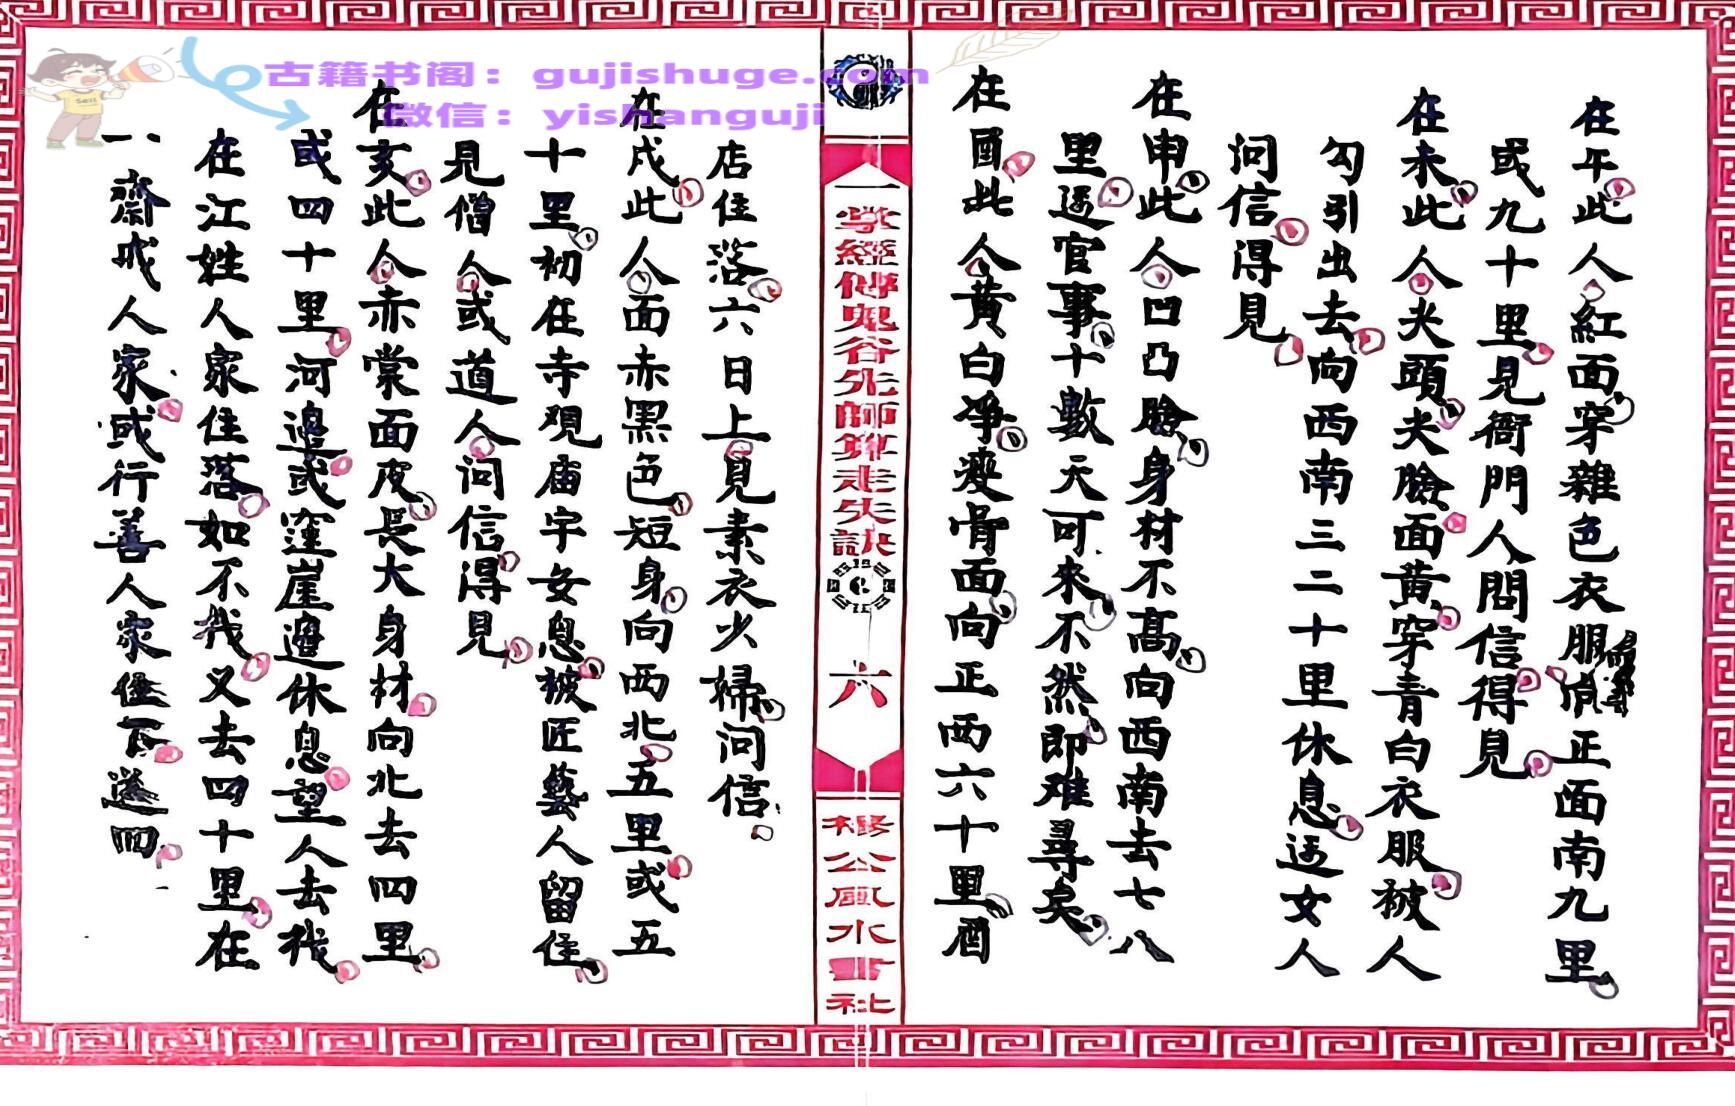 在午此人紅面穿雜色衣服向正面南九里
或九十里見衙門人問信得見
在未此人夫頭夫臉面黃穿青白衣服被人
勾引出去向西南三二十里休息逢女人
问信得見
在申此人凹凸臉身材不高向西南去七八
里逢官事十數天可來不然即难尋矣
在酉此人黃白净瘦骨面向正西六十里酒
一掌經傳鬼谷先師算走失訣
六
楊公風水書社
店住落六日上見素衣少婦问信
在戌此人面赤黑色短身向西北五里或五
十里初在寺观庙宇安息被匠藝人留住
見僧人或道人问信得見
在亥此人赤棠面皮長大身材向北去四里
或四十里河邊或窪崖邊休息望人去找
在江姓人家住落如不找又去四十里在
一齋戒人家或行善人家住下送回
古籍书阁：gujishuge.com
微信：yishanguji